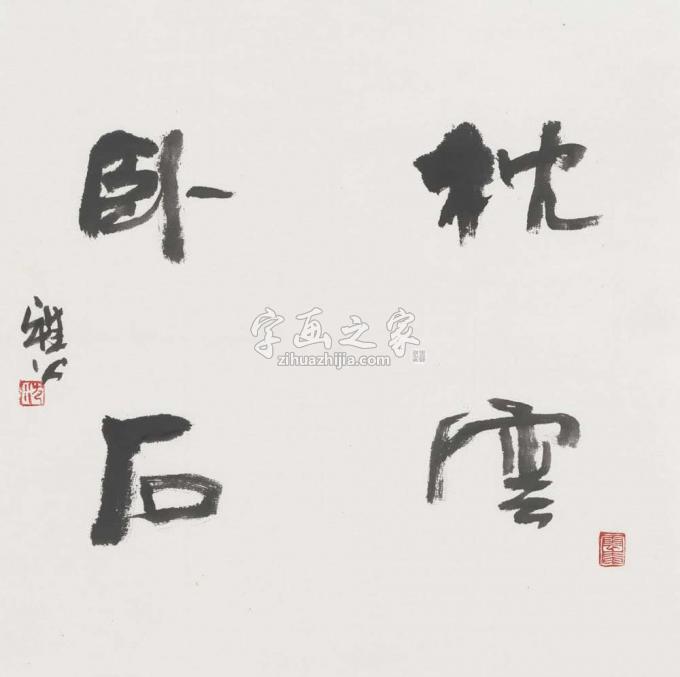 枕雲
卧石
字画之家
zihuazhijia.com